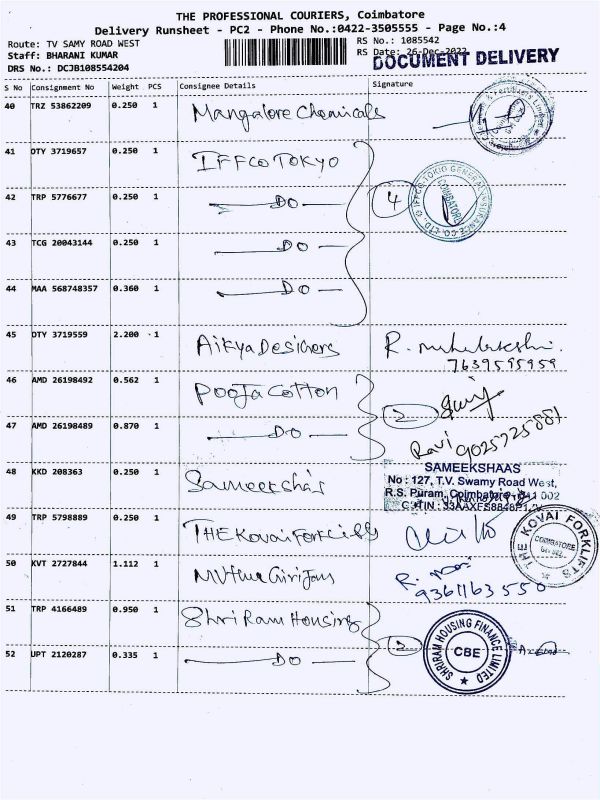 THE PROFESSIONAL COURIERS, Coimbatore
Delivery Runsheet - PC2 - Phone No.:0422-3505555 - Page No.:4
Route: TV SAMY ROAD WEST
RS No.: 1085542
Staff: BHARANI KUMAR
RS Date: 26-Dec-2022
DOCUMENT DELIVERY
DRS No.: DCJB108554204
S No Consignment No Weight PCS Consignee Details Signature
40 TRZ 53862209 0.250 1 Mangalore Chemicals
41 DTY 3719657 0.250 1 IFFCO TOKYO
42 TRP 5776677 0.250 1 DO 4
IFFCO-TOKIO GENERAL INSURANCE CO. LTD.
COIMBATORE
43 TCG 20043144 0.250 1 DO
44 MAA 568748357 0.360 1 DO
45 DTY 3719559 2.200 1 Aikya Designers R.
7639595959
46 AMD 26198492 0.562 1 Pooja Cotton 2
47 AMD 26198489 0.870 1 DO Ravi 9025725881
48 KKD 208363 0.250 1 Sameeksha's
SAMEEKSHAAS
No : 127, T.V. Swamy Road West,
R.S. Puram, Coimbatore
49 TRP 5798889 0.250 1 THE Kovai Forklifts
KOVAI FORKLIFTS
COIMBATORE
50 KVT 2727844 1.112 1 R.
9361163550
51 TRP 4166489 0.950 1 Shri Ram Housing
52 UPT 2120287 0.335 1 DO 2
SHRIRAM HOUSING FINANCE LIMITED
CBE